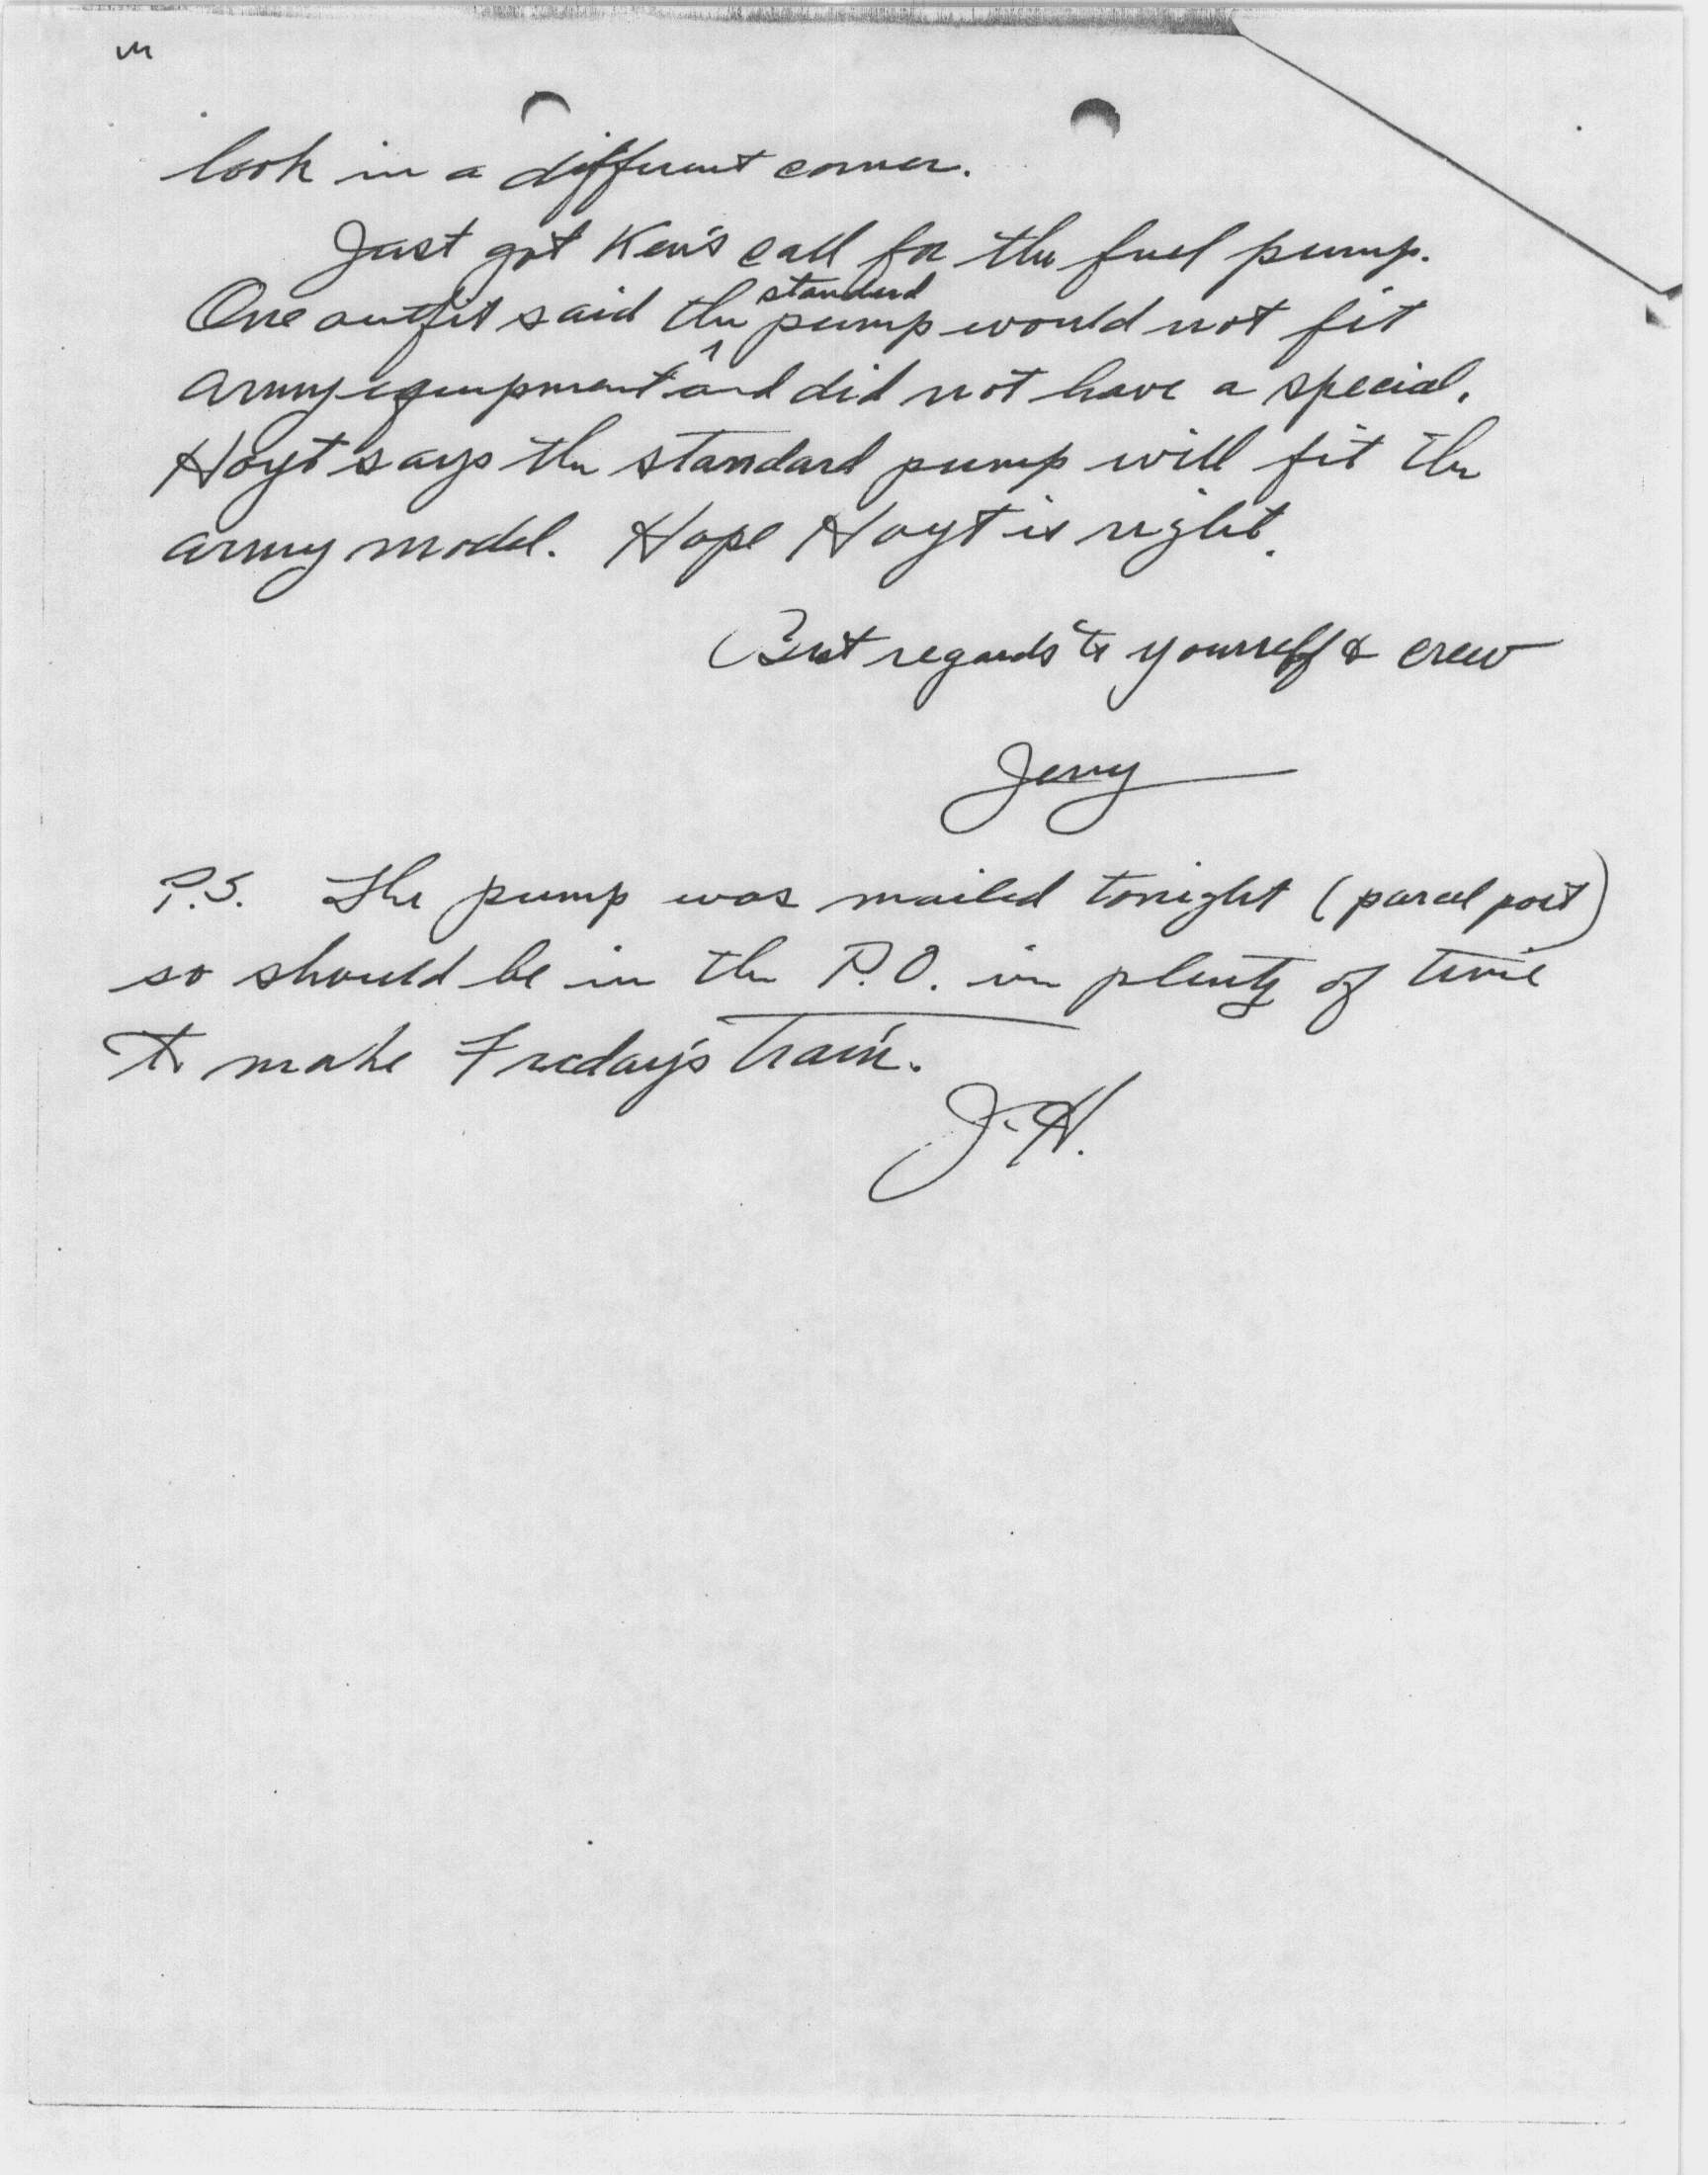 look in a different corner.
Just got Ken's call for the fuel pump.
One outfit said the standard pump would not fit
army equipment and did not have a special.
Hoyt says the standard pump will fit the
army model. Hope Hoyt is right.
Best regards to yourself & crew
Jerry
P.S. The pump was mailed tonight (parcel post)
so should be in the P.O. in plenty of time
to make Friday's train.
J.H.